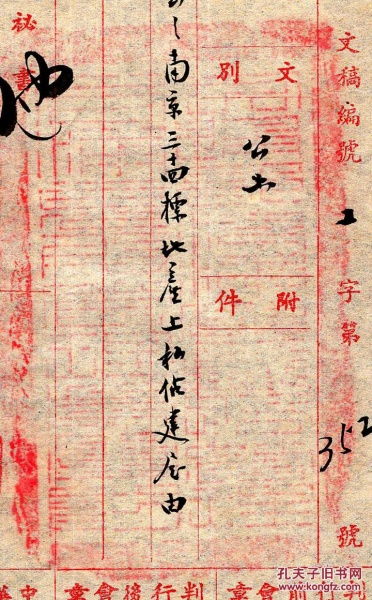 文稿編號 工 字第 352 號
文別
公出
附件
南京三十四標地產上私佔建屋由
秘書
判行後會章
會章
孔夫子旧书网
www.kongfz.com